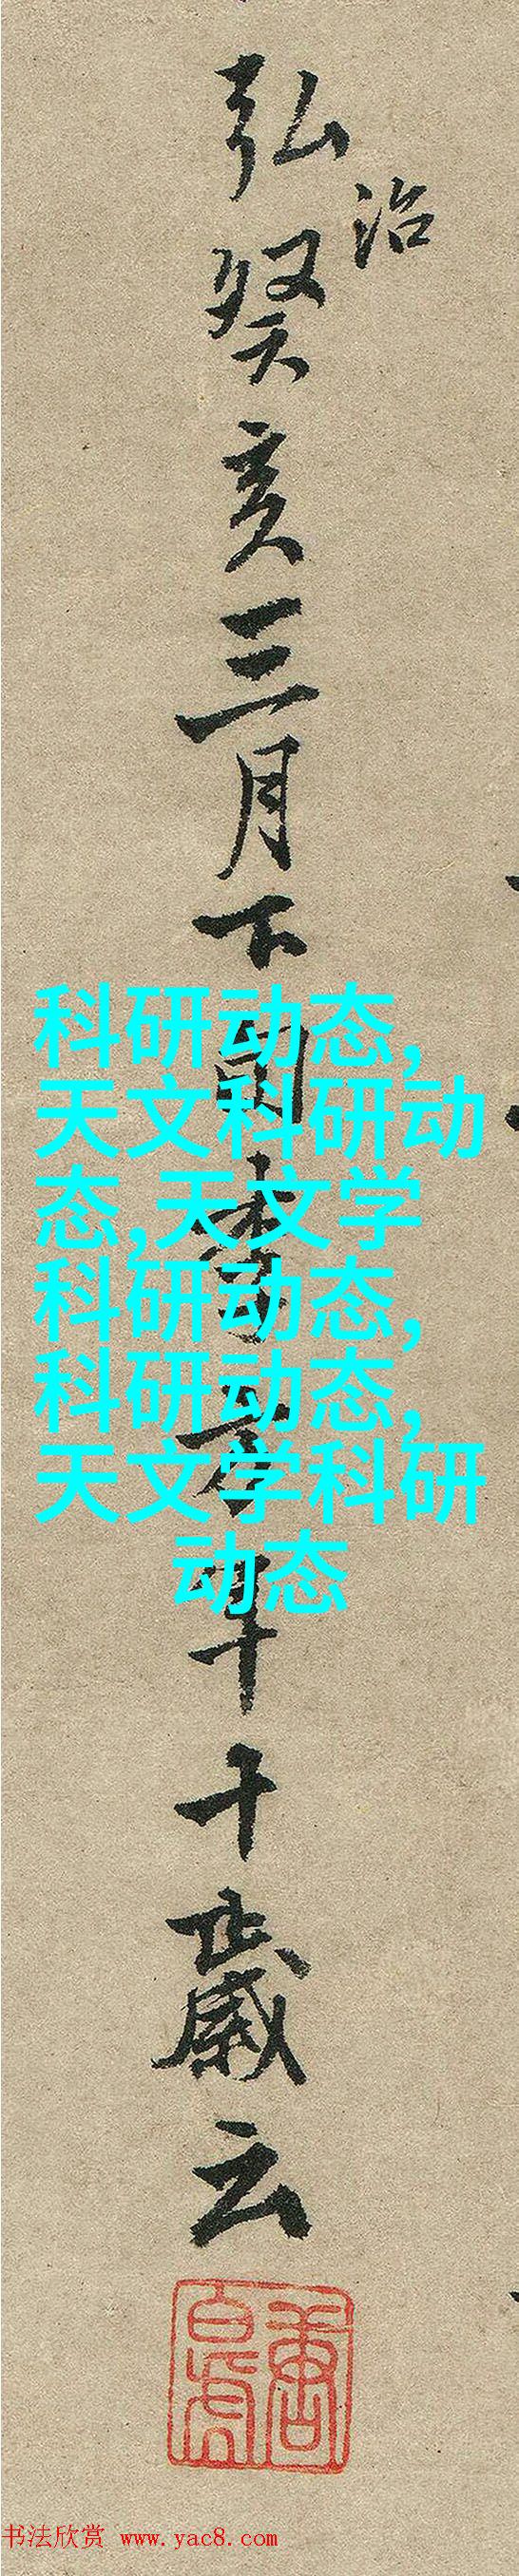 弘治癸亥三月下
十歲云
科研动态,
天文科研动
态,天文学
科研动态,
科研动态,
天文学科研
动态
书法欣赏 www.yac8.com